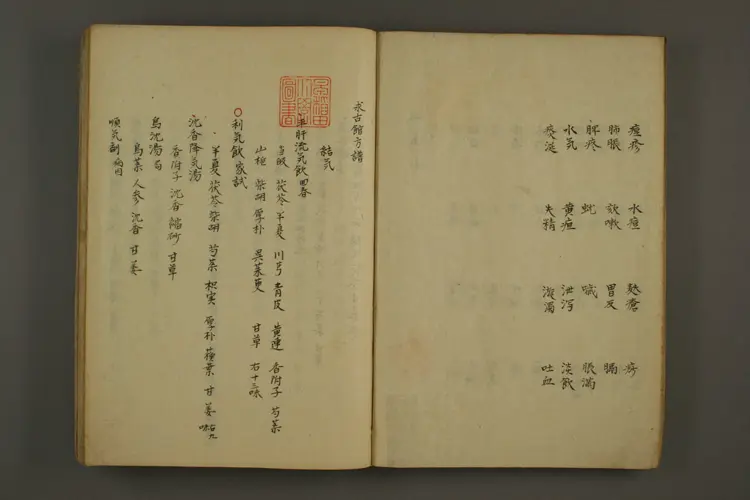 痘疹 水痘
肺脹 咳嗽 胃反 膈
脾疼 噦 脹満
水気 黄疸 泄泻 淡飲
痰涎 失精 溲濁 吐血
求古館方譜
諸気
平肝流気飲 回春
当皈 茯苓 半夏 川芎 青皮 黄連 香附子 芍薬
山梔 柴胡 厚朴 呉茱萸 甘草 右十三味
○利気飲 家試
半夏 茯苓 柴胡 芍薬 枳実 厚朴 蘓葉 甘 姜 右九味
沈香降気湯
香附子 沈香 縮砂 甘草
烏沈湯 局
烏薬 人参 沈香 甘 姜
順気剤 病因